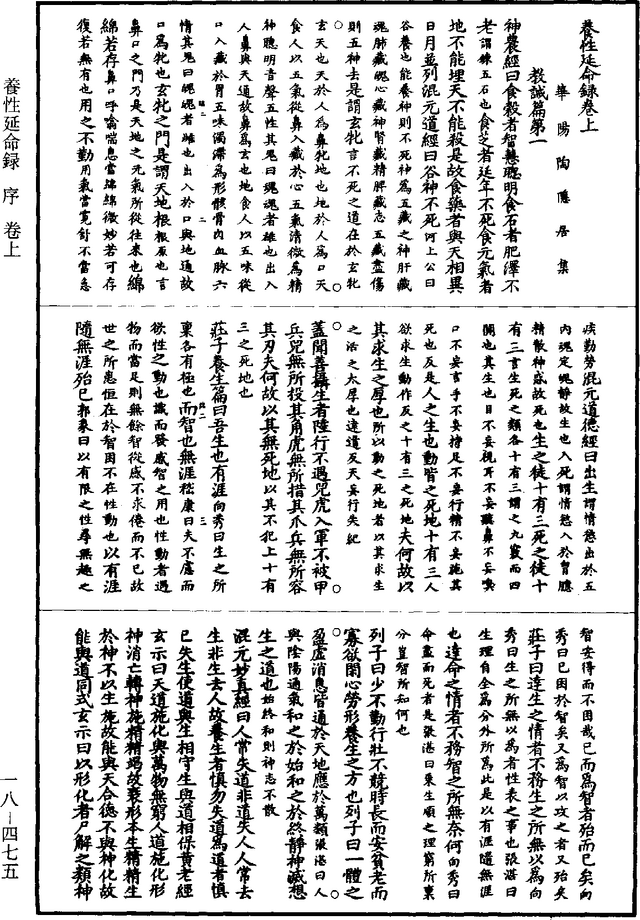 養性延命録卷上
華陽陶隱居集
教誡篇第一
神農經曰食穀者智慧聰明食石者肥澤不
老謂鍊五石也食芝者延年不死食元氣者
地不能埋天不能殺是故食藥者與天相異
日月並列混元道經曰谷神不死河上公曰
谷養也能養神則不死神為五藏之神肝藏
魂肺藏魄心藏神腎藏精脾藏志五藏盡傷
則五神去是謂玄牝言不死之道在於玄牝
玄天也天於人為鼻牝地也地於人為口天
食人以五氣從鼻入藏於心五氣清微為精
神聰明音聲五性其鬼曰魂魂者雄也出入
人鼻與天通故鼻為玄也地食人以五味從
口入藏於胃五味濁滯為形骸骨肉血脉六
情其鬼曰魄魄者雌也出入於口與地通故
口為牝也玄牝之門是謂天地根根原也言
鼻口之門乃是天地之元氣所從往來也綿
綿若存鼻口呼噏喘息當綿綿微妙若可存
復若無有也用之不勤用氣當寬舒不當急
疾勤勞混元道德經曰出生謂情慾出於五
內魂定魄靜故生也入死謂情慾入於胷臆
精散神惑故死也生之徒十有三死之徒十
有三言生死之類各十有三謂之九竅而四
關也其生也目不妄視耳不妄聽鼻不妄嗅
口不妄言手不妄持足不妄行精不妄施其
死也反是人之生也動皆之死地十有三人
欲求生動作反之十有三之死地夫何故以
其求生之厚也所以動之死地者以其求生
之活之太厚也違道反天妄行失紀
蓋聞善攝生者陸行不遇兕虎入軍不被甲
兵兕無所投其角虎無所措其爪兵無所容
其刃夫何故以其無死地以其不犯上十有
三之死地也
莊子養生篇曰吾生也有涯向秀曰生之所
稟各有極也而智也無涯嵇康曰夫不慮而
欲性之動也識而發感智之用也性動者遇
物而當足則無餘智從感不求倦而不已故
世之所患恒在於智困不在性動也以有涯
隨無涯殆已郭象曰以有限之性尋無趣之
智安得而不困哉已而為智者殆而已矣向
秀曰已困於智矣又為智以攻之者又殆矣
莊子曰達生之情者不務生之所無以為向
秀曰生之所無以為者性表之事也張湛曰
生理自全為分外所為此是以有涯隨無涯
也達命之情者不務智之所無奈何向秀曰
命盡而死者是張湛曰乗生順之理窮所稟
分豈智所知何也
列子曰少不勤行壯不競時長而安貧老而
寡欲閑心勞形養生之方也列子曰一體之
盈虛消息皆通於天地應於萬類張湛曰人
與陰陽通氣和之於始和之於終靜神滅想
生之道也始終和則神志不散
混元妙真經曰人常失道非道失人人常去
生非生去人故養生者慎勿失道為道者慎
已失生使道與生相守生與道相保黃老經
玄示曰天道施化與萬物無窮人道施化形
神消亡轉神施精精竭故衰形本生精精生
於神不以生施故能與天合德不與神化故
能與道同式玄示曰以形化者尸解之類神
養性延命録 序 卷上
一八-四七五